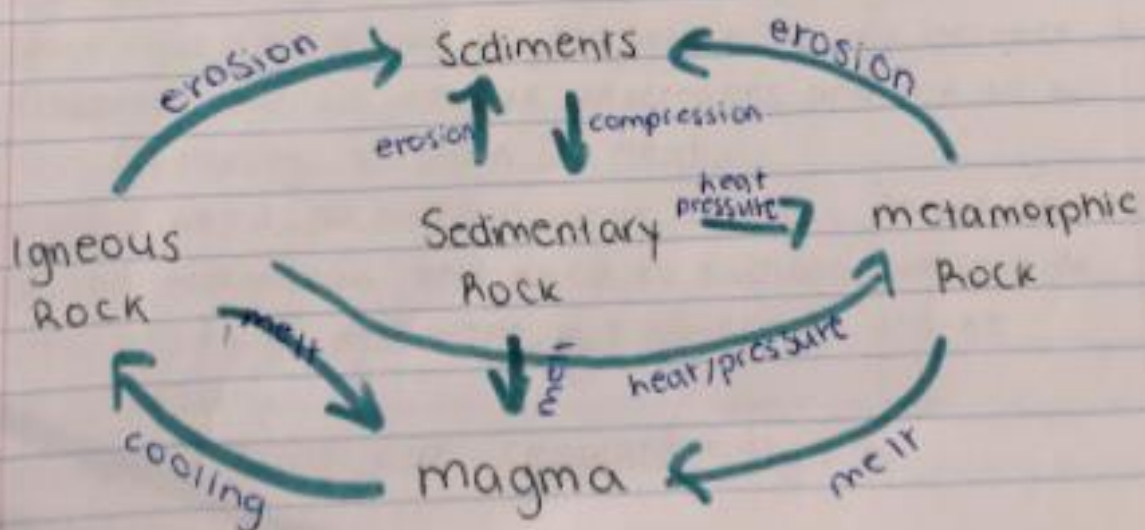 erosion
Sediments
erosion
erosion
compression
heat
pressure
Igneous
Rock
Sedimentary
Rock
metamorphic
Rock
melt
melt
heat/pressure
cooling
magma
melt